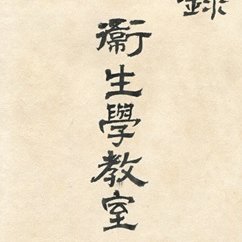 錄
衞生學教室